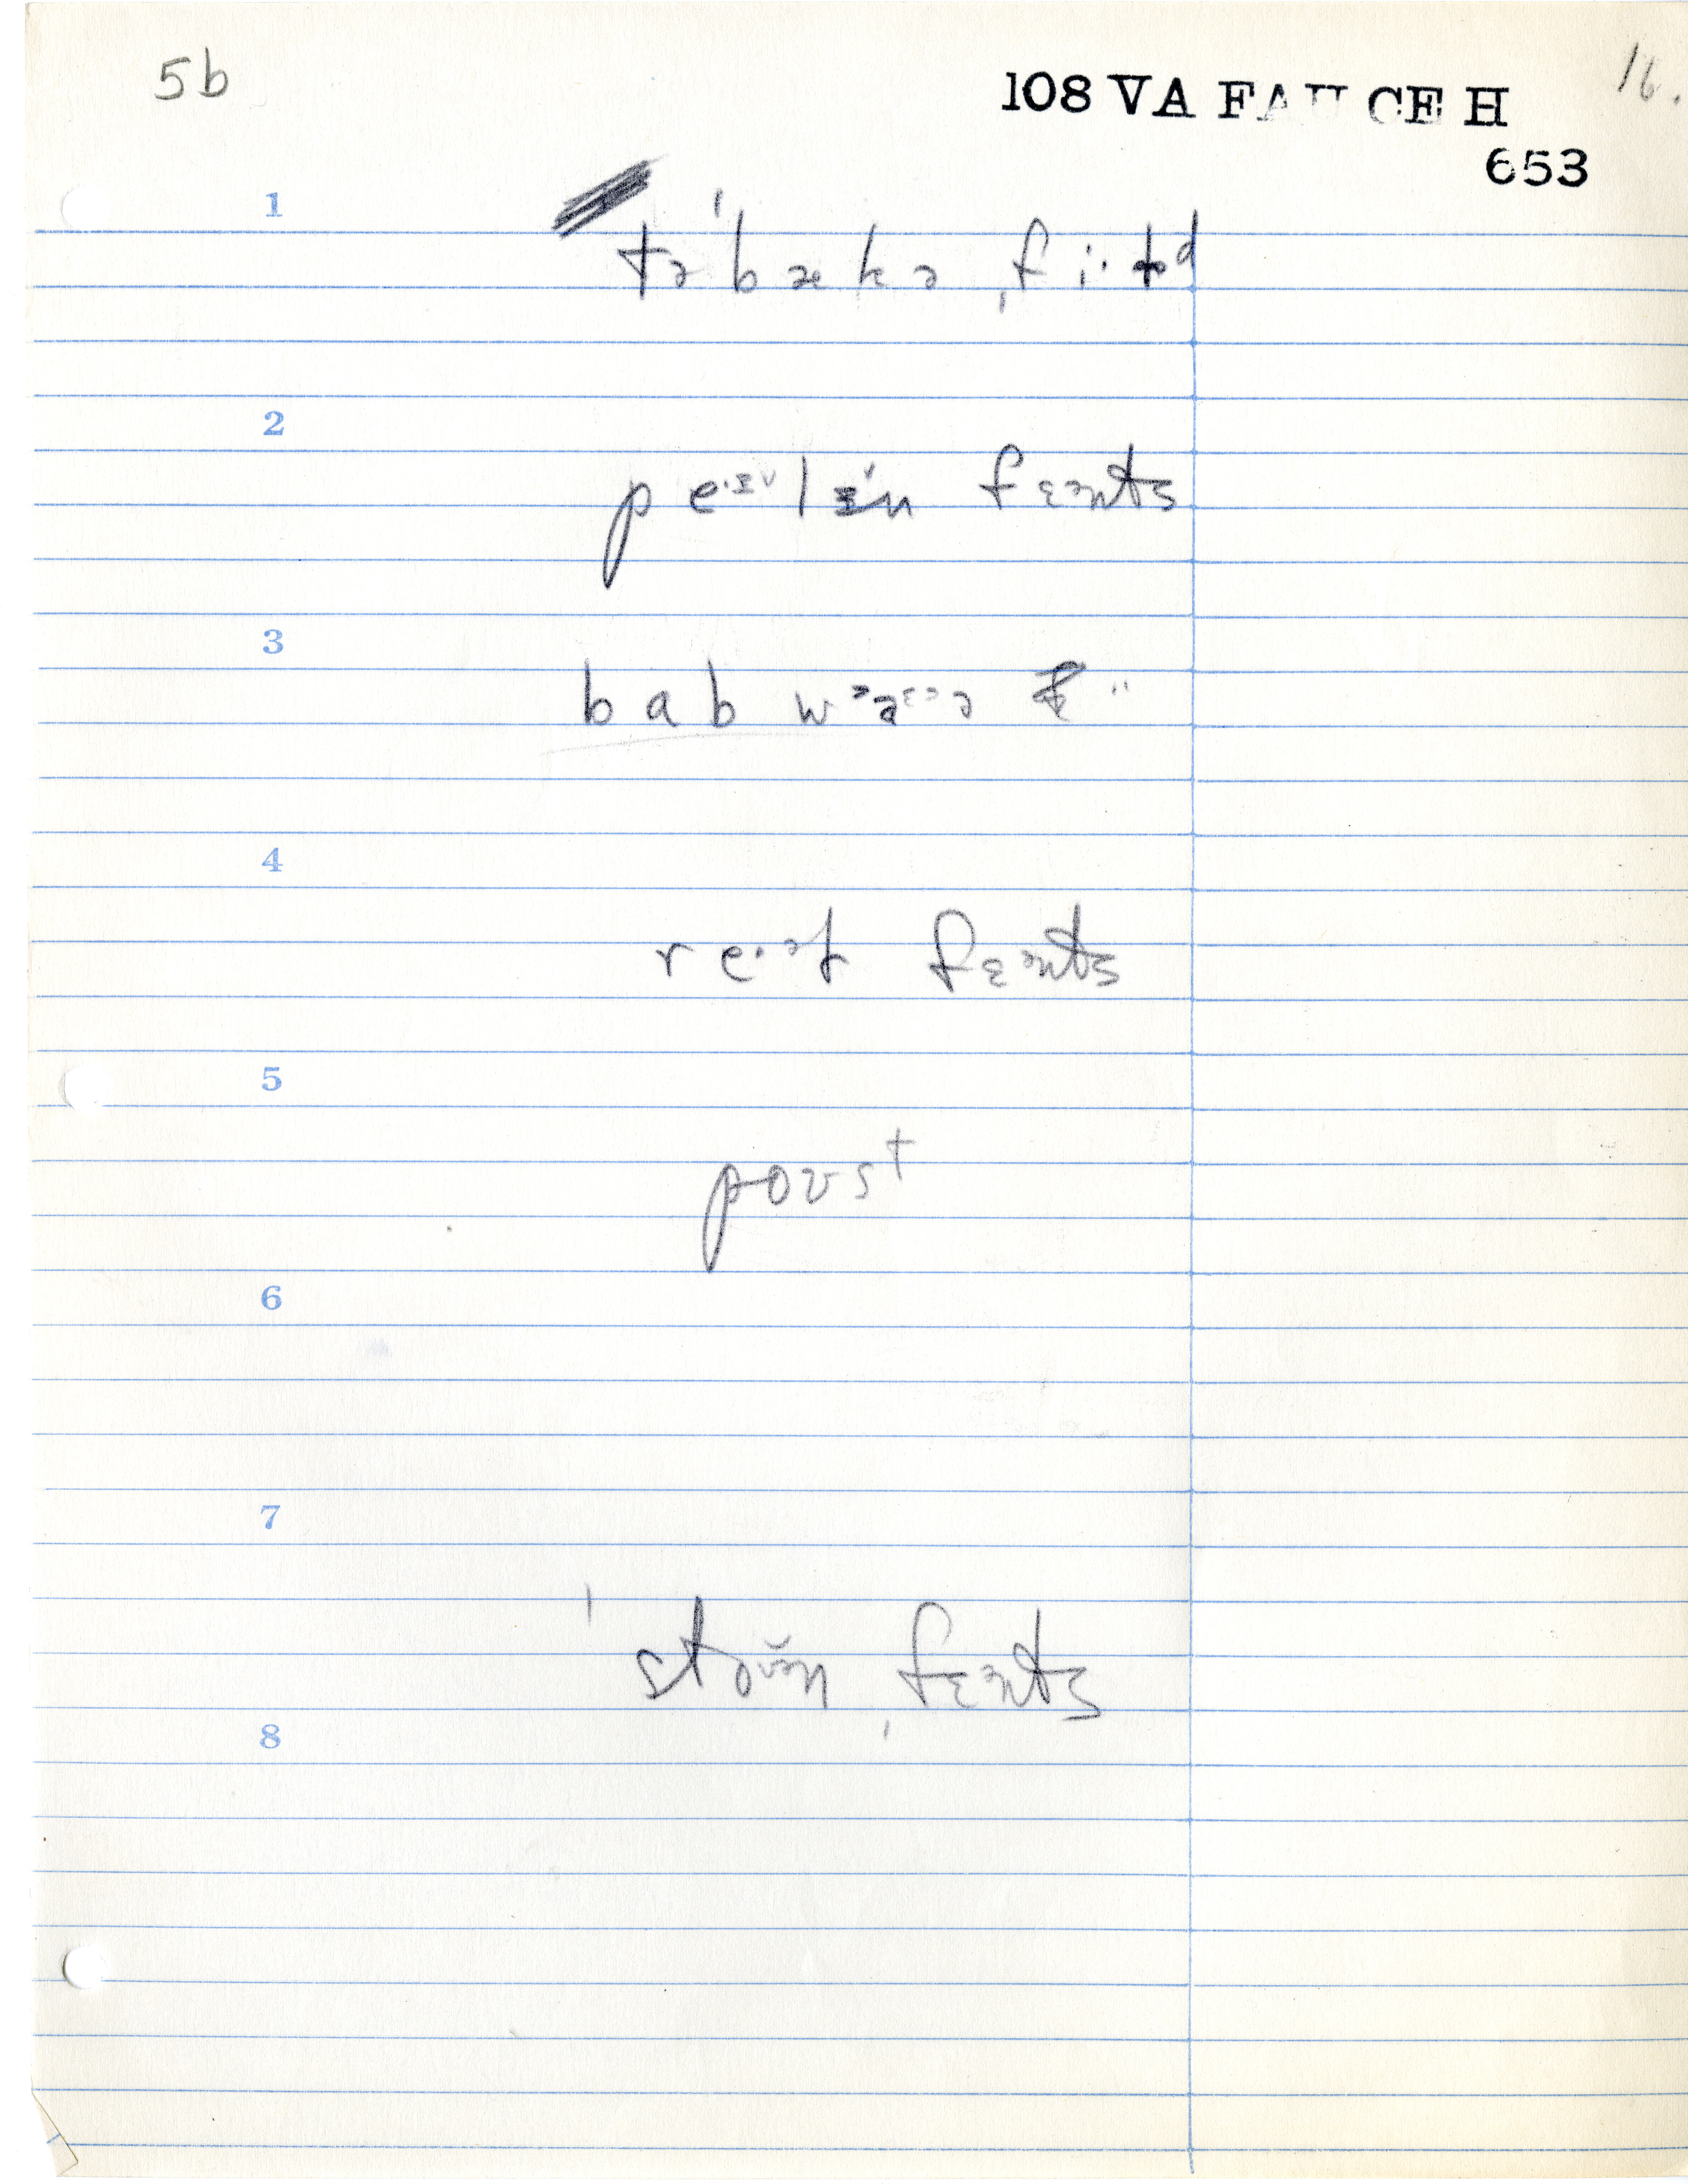 5b
16.
108 VA FAU CE H
653
1
tə'bækə ˌfi·ld
2
pe·ɪlɪn fɛənts
3
bab
4
re·əl fɛənts
5
poʊst
6
7
'stoʊn ˌfɛənts
8